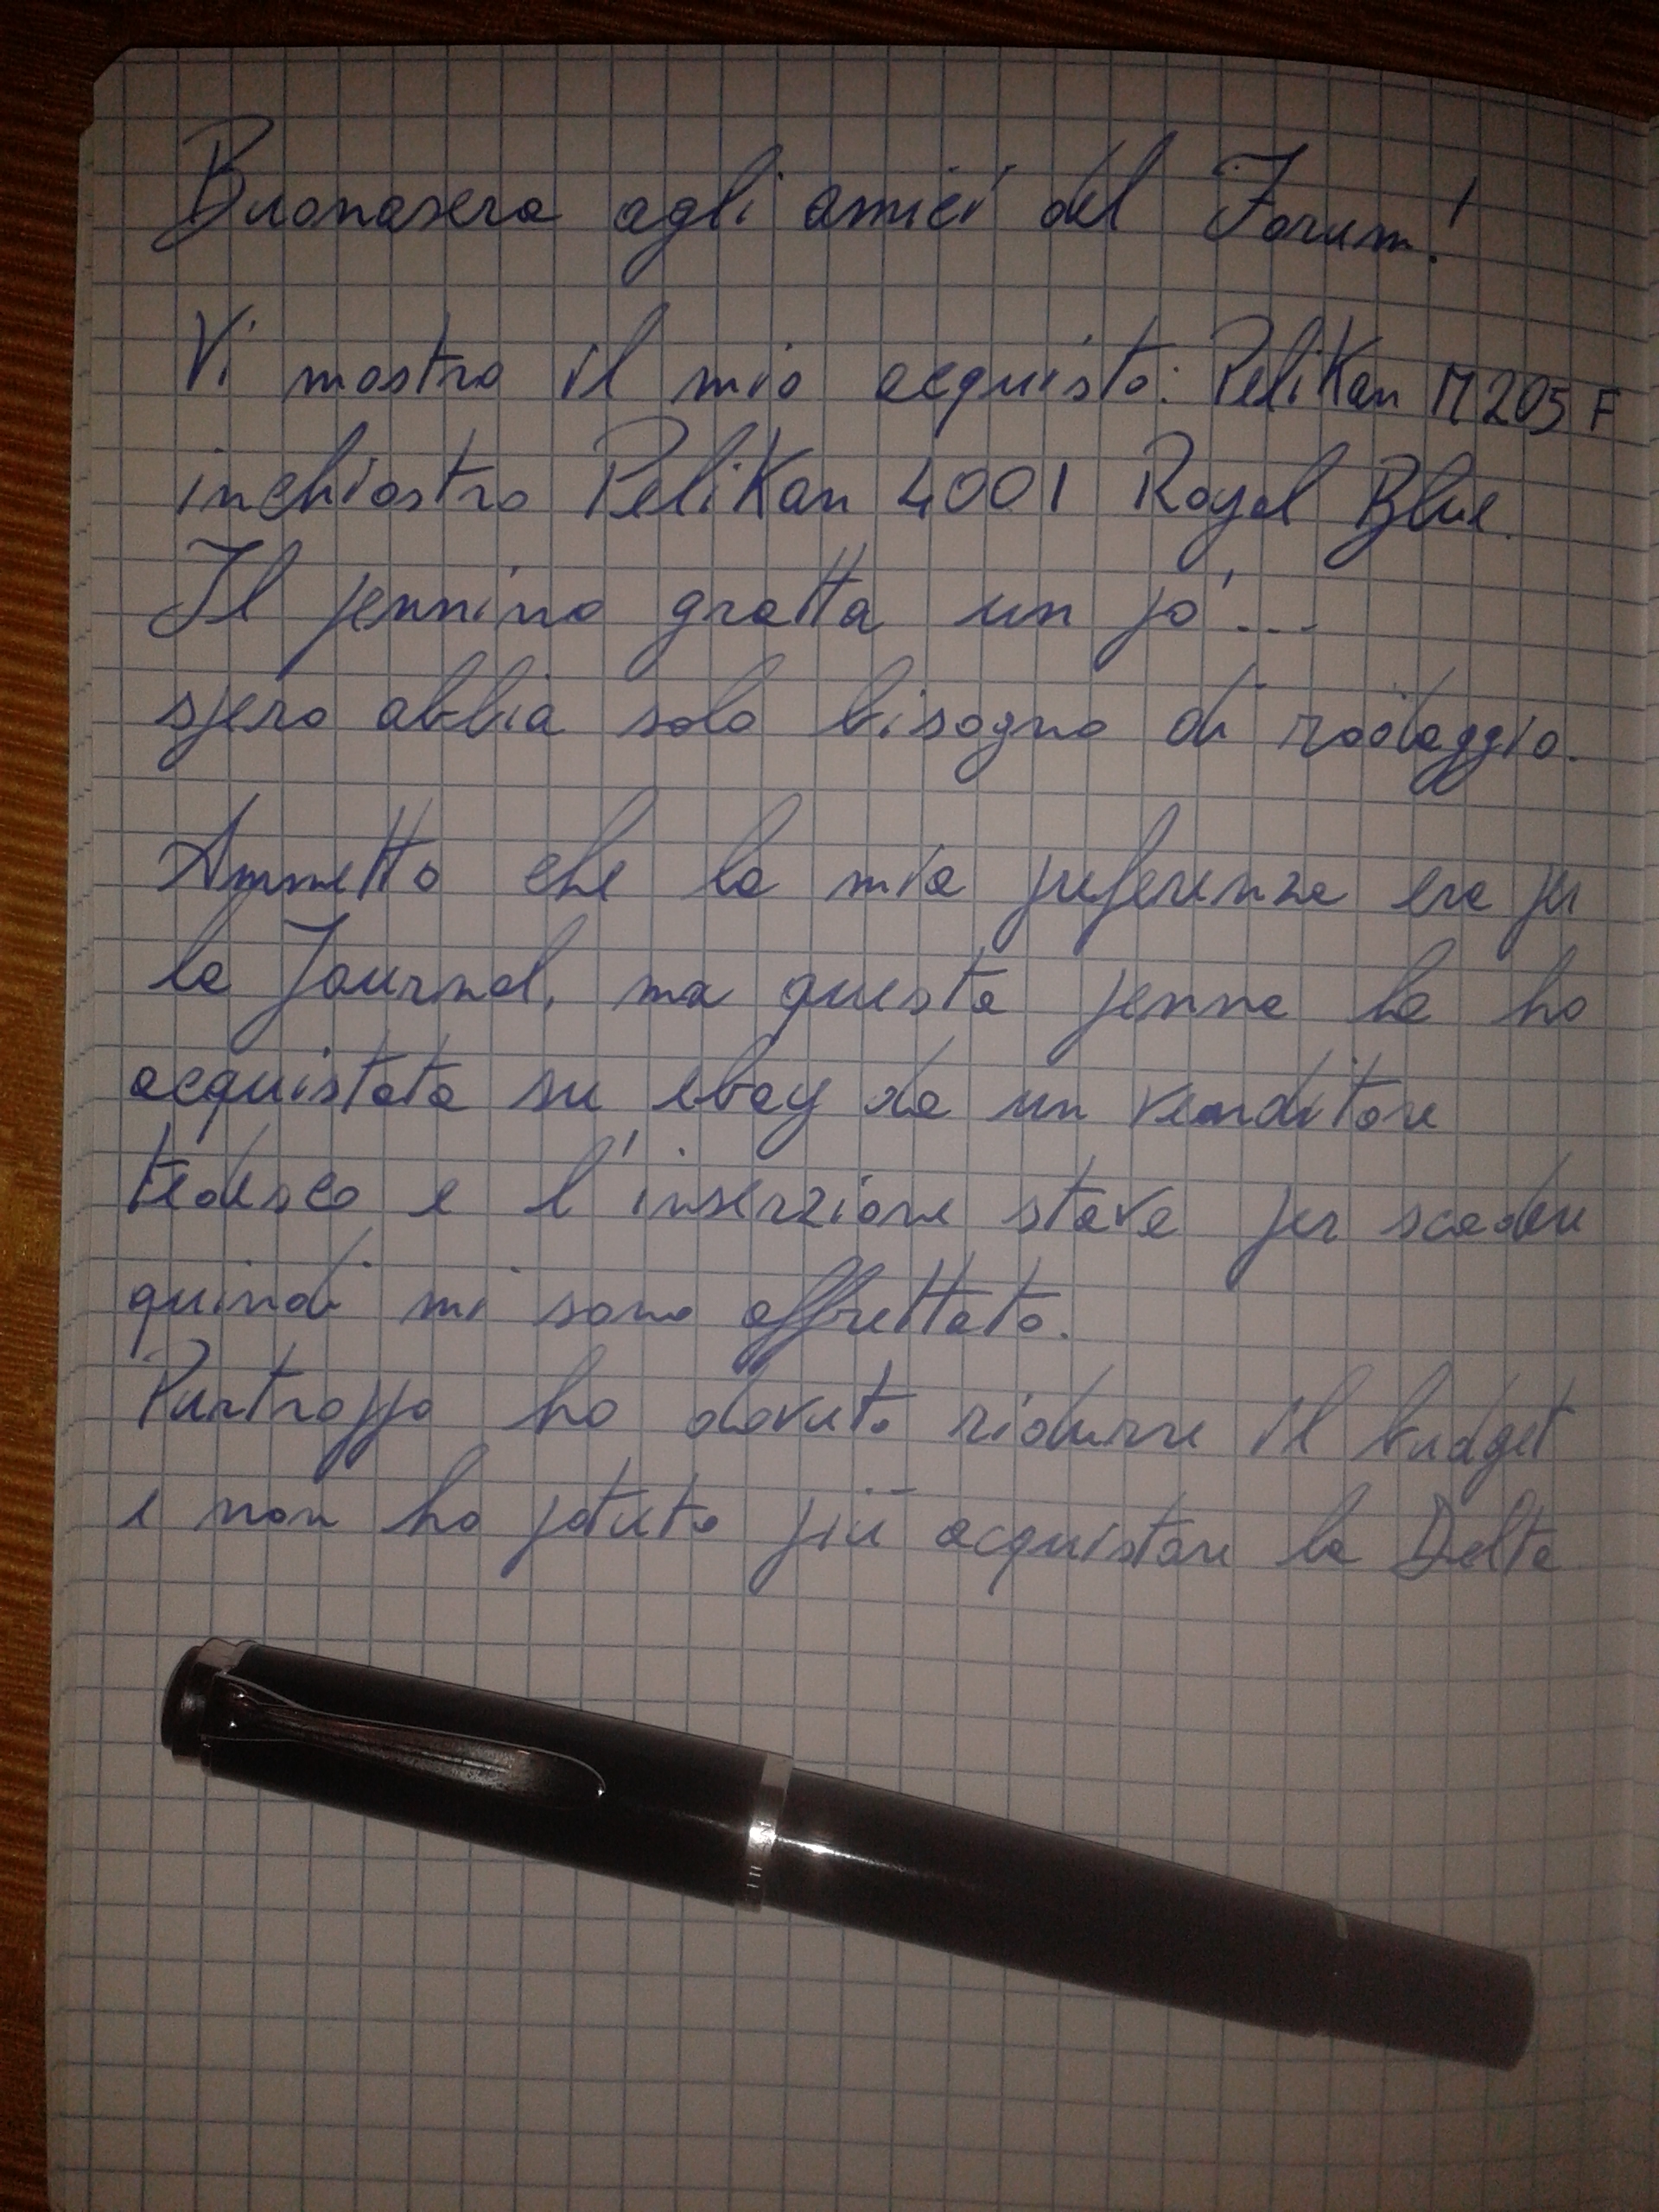 Buonasera agli amici del Forum!
Vi mostro il mio acquisto: Pelikan M205 F
inchiostro Pelikan 4001 Royal Blue.
Il pennino gratta un po'...
spero abbia solo bisogno di rodaggio.
Ammetto che la mia preferenza era per
la Journal, ma questa penna la ho
acquistata su ebay da un venditore
tedesco e l'inserzione stava per scadere
quindi mi sono affrettato.
Purtroppo ho dovuto ridurre il budget
e non ho potuto più acquistare la Delta